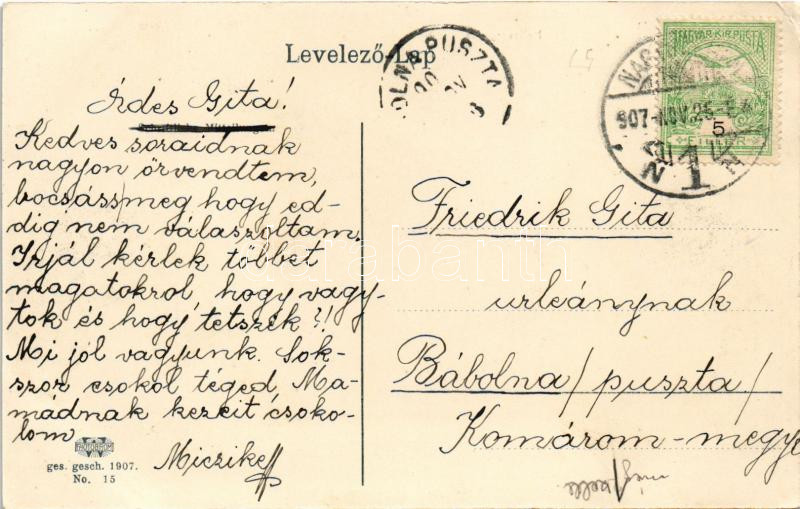 Levelező-Lap
Édes Gita!
Kedves soraidnak
nagyon örvendtem,
bocsáss meg hogy ed-
dig nem válaszoltam.
Irjál kérlek többet
magatokrol, hogy vagy-
tok és hogy tetszik?!
Mi jól vagyunk. Sok-
szor csokol téged, Ma-
mádnak kezeit csoko-
lom
Miczike
ges. gesch. 1907.
No. 15
OLNAPUSZTA
MAGYAR KIR. POSTA
907-NOV.25
5
FILLÉR
1
Friedrik Gita
urleánynak
Bábolna/puszta/
Komárom-megye